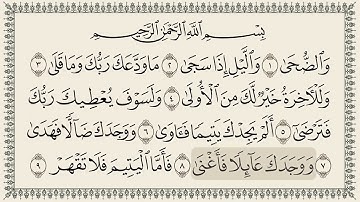 بِسْمِ ٱللَّهِ ٱلرَّحْمَٰنِ ٱلرَّحِيمِ
وَٱلضُّحَىٰ ١ وَٱلَّيْلِ إِذَا سَجَىٰ ٢ مَا وَدَّعَكَ رَبُّكَ وَمَا قَلَىٰ ٣
وَلَلْءَاخِرَةُ خَيْرٌ لَّكَ مِنَ ٱلْأُولَىٰ ٤ وَلَسَوْفَ يُعْطِيكَ رَبُّكَ
فَتَرْضَىٰٓ ٥ أَلَمْ يَجِدْكَ يَتِيمًا فَـَٔاوَىٰ ٦ وَوَجَدَكَ ضَآلًّا فَهَدَىٰ
٧ وَوَجَدَكَ عَآئِلًا فَأَغْنَىٰ ٨ فَأَمَّا ٱلْيَتِيمَ فَلَا تَقْهَرْ ٩